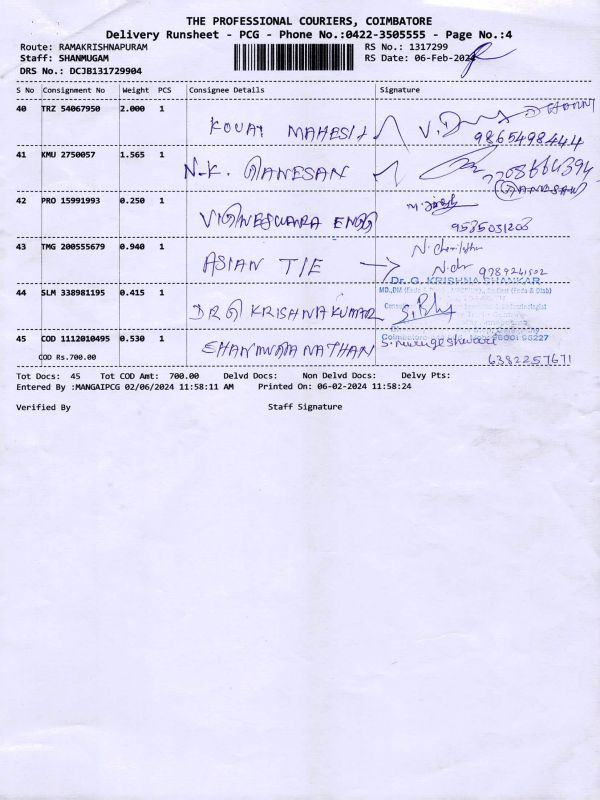 THE PROFESSIONAL COURIERS, COIMBATORE
Delivery Runsheet - PCG - Phone No.:0422-3505555 - Page No.:4
Route: RAMAKRISHNAPURAM RS No.: 1317299
Staff: SHANMUGAM RS Date: 06-Feb-2024
DRS No.: DCJB131729904
S No Consignment No Weight PCS Consignee Details Signature
40 TRZ 54067950 2.000 1
KOVAI MAHESH 9865498444
41 KMU 2750057 1.565 1
N.K. GANESAN
GANESAN
42 PRO 15991993 0.250 1
VIGNESWARA ENGG 9535031203
43 TMG 200555679 0.940 1
ASIAN TIE 9789241502
Dr. G. KRISHNA SHANKAR
44 SLM 338981195 0.415 1
DR G KRISHNA KUMAR
45 COD 1112010495 0.530 1
S. Murugeshwari
COD Rs.700.00 6382257671
Tot Docs: 45 Tot COD Amt: 700.00 Delvd Docs: Non Delvd Docs: Delvy Pts:
Entered By :MANGAIPCG 02/06/2024 11:58:11 AM Printed On: 06-02-2024 11:58:24
Verified By Staff Signature